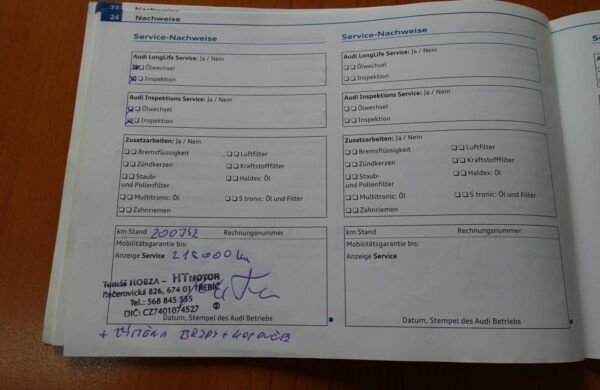 24 Nachweise
Service-Nachweise
Audi LongLife Service: Ja / Nein
Ölwechsel
Inspektion
Audi Inspektions Service: Ja / Nein
Ölwechsel
Inspektion
Zusatzarbeiten: Ja / Nein
Bremsflüssigkeit
Luftfilter
Zündkerzen
Kraftstofffilter
Staub-
und Pollenfilter
Haldex: Öl
Multitronic: Öl
S tronic: Öl und Filter
Zahnriemen
km Stand 200342 Rechnungsnummer
Mobilitätsgarantie bis:
Anzeige Service 215000 km
Tomáš HOBZA - HT MOTOR
Pačerovická 826, 674 01 TŘEBÍČ
Tel.: 568 845 555
DIČ: CZ7401074527
Datum, Stempel des Audi Betriebs
+ VÝMĚNA BRZD
Service-Nachweise
Audi LongLife Service: Ja / Nein
Ölwechsel
Inspektion
Audi Inspektions Service: Ja / Nein
Ölwechsel
Inspektion
Zusatzarbeiten: Ja / Nein
Bremsflüssigkeit
Luftfilter
Zündkerzen
Kraftstofffilter
Staub-
und Pollenfilter
Haldex: Öl
Multitronic: Öl
S tronic: Öl und Filter
Zahnriemen
km Stand Rechnungsnummer
Mobilitätsgarantie bis:
Anzeige Service
Datum, Stempel des Audi Betriebs